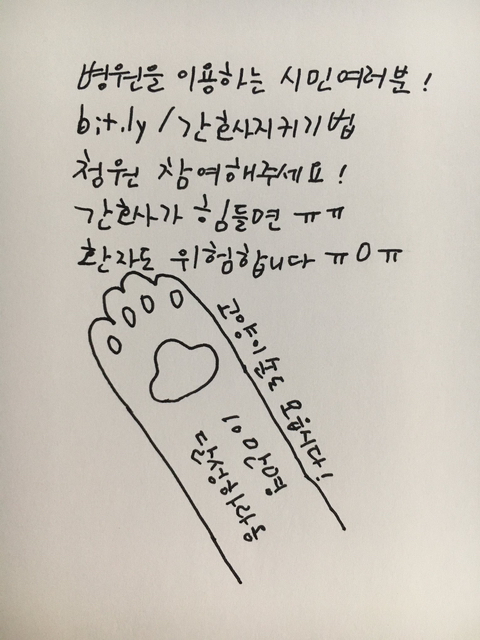 병원을 이용하는 시민여러분!
bit.ly/간호사지키기법
청원 참여해주세요!
간호사가 힘들면 ㅠㅠ
환자도 위험합니다 ㅠOㅠ
고양이손도 모읍시다!
10만명
달성하라옹